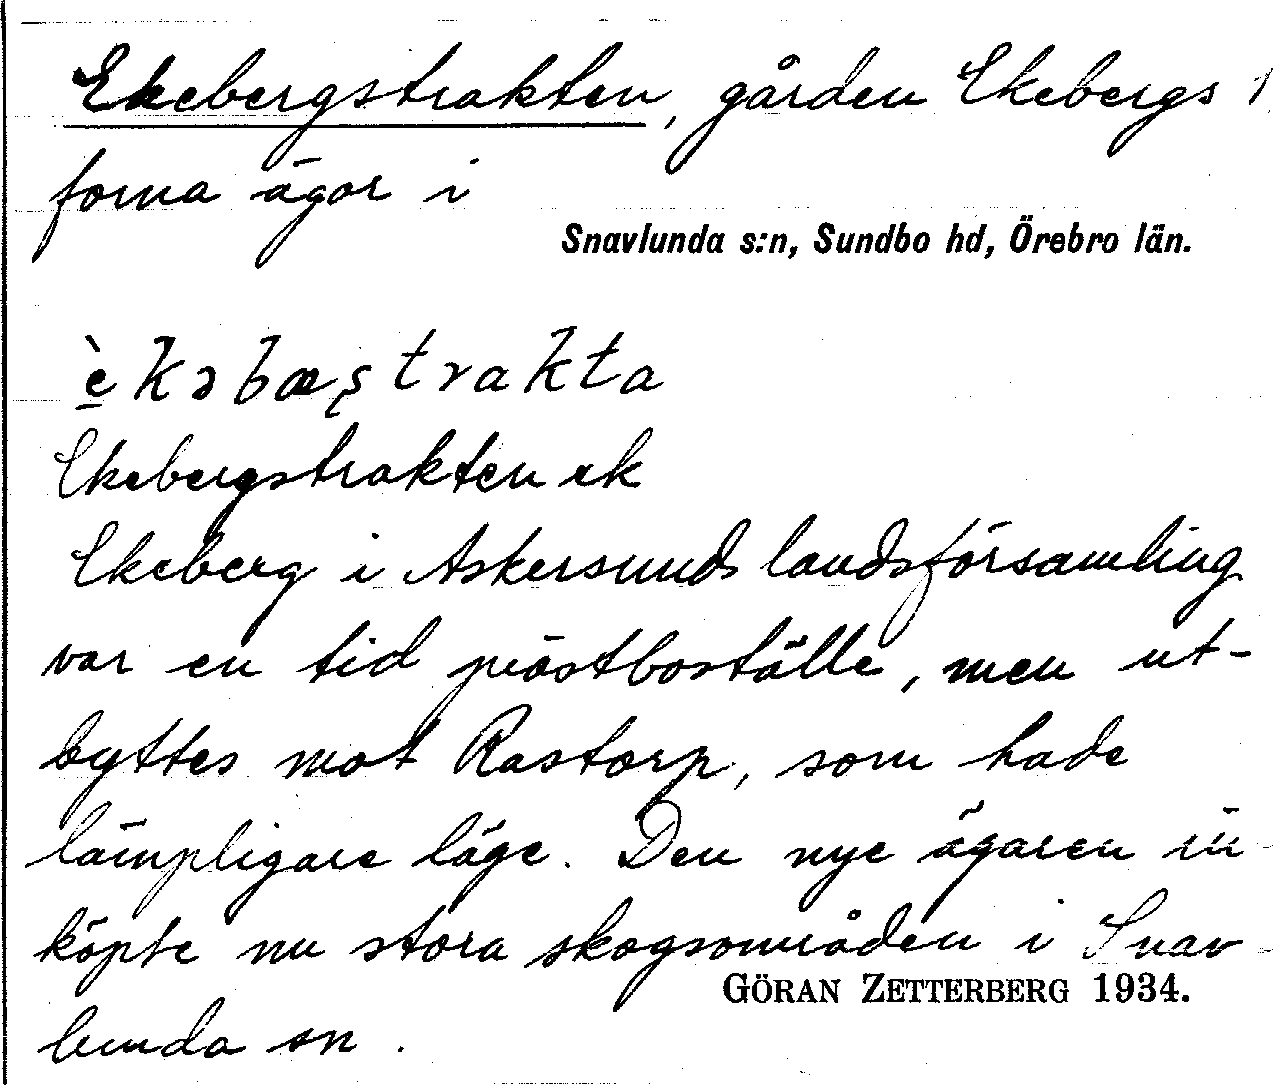 Ekebergstrakten, gården Ekebergs 1
forna ägor i
Snavlunda s:n, Sundbo hd, Örebro län.
è̱kəbæʂtrakta
Ekebergstrakten ek
Ekeberg i Askersunds landsförsamling
var en tid prästboställe, men ut-
byttes mot Rastorp, som hade
lämpligare läge. Den nye ägaren in-
köpte nu stora skogsområden i Snav-
lunda sn.
GÖRAN ZETTERBERG 1934.